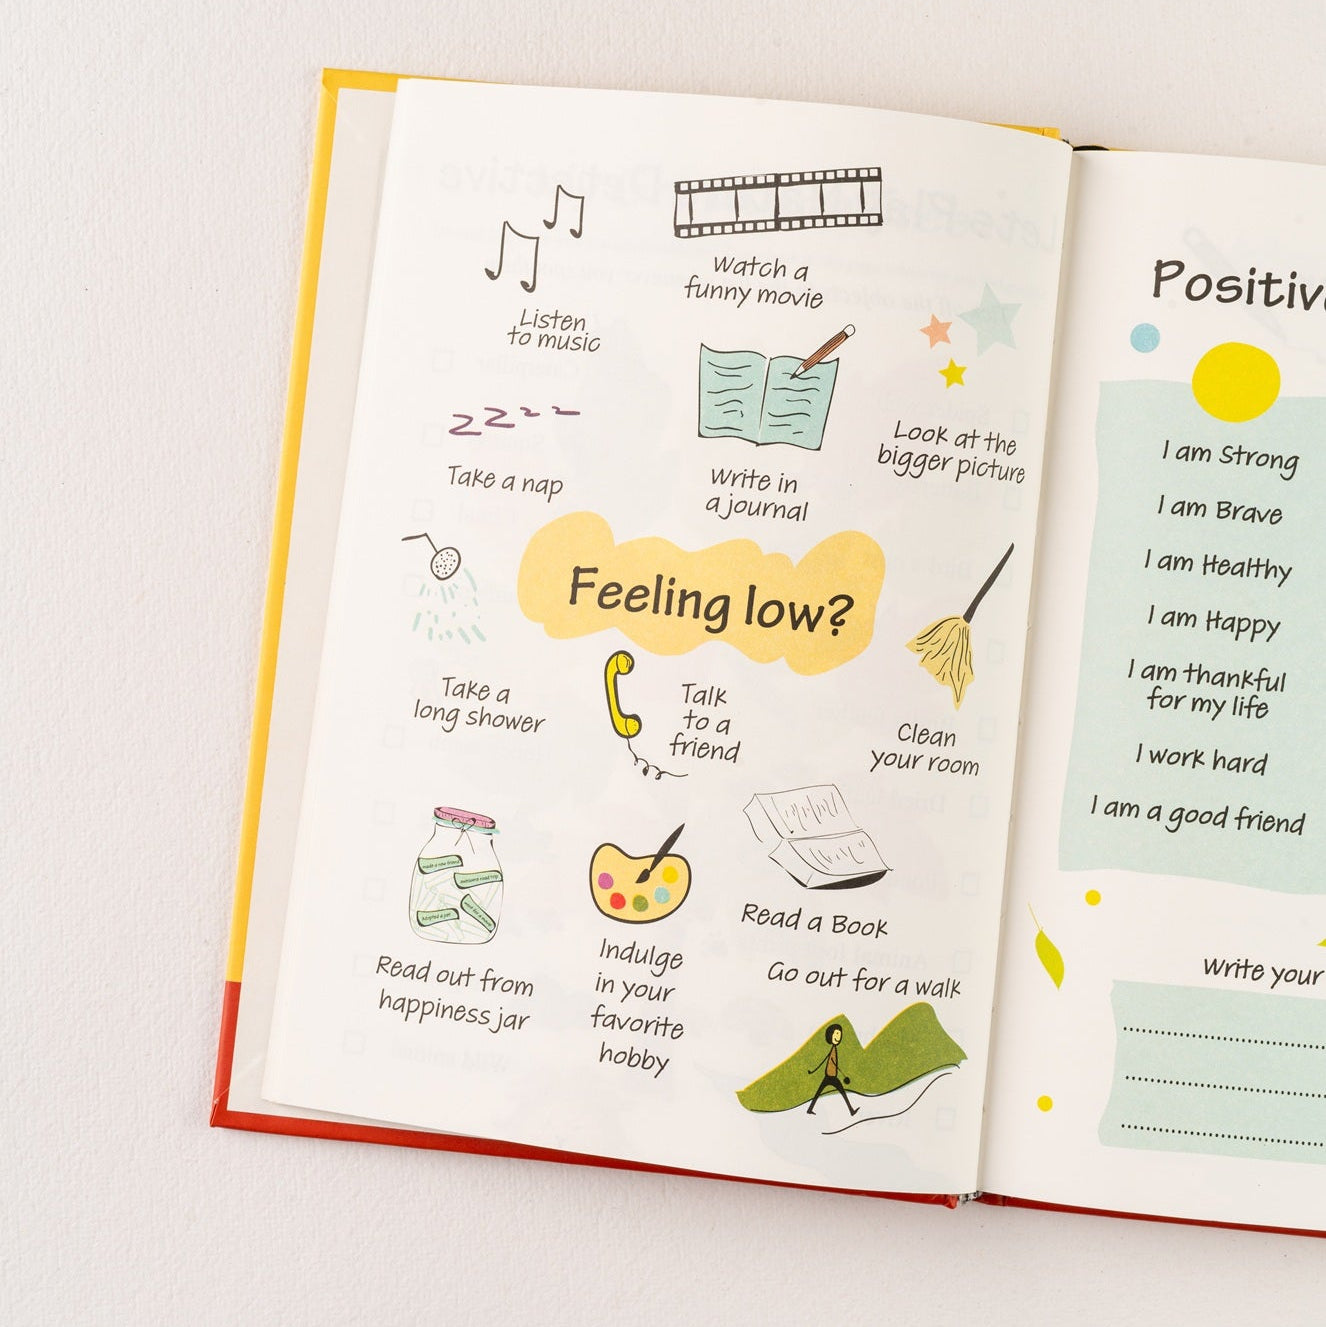 Watch a
funny movie
Listen
to music
Look at the
bigger picture
Take a nap
Write in
a journal
Feeling low?
Take a
long shower
Talk
to a
friend
Clean
your room
Read a Book
Read out from
happiness jar
Indulge
in your
favorite
hobby
Go out for a walk
Positive
I am Strong
I am Brave
I am Healthy
I am Happy
I am thankful
for my life
I work hard
I am a good friend
Write your